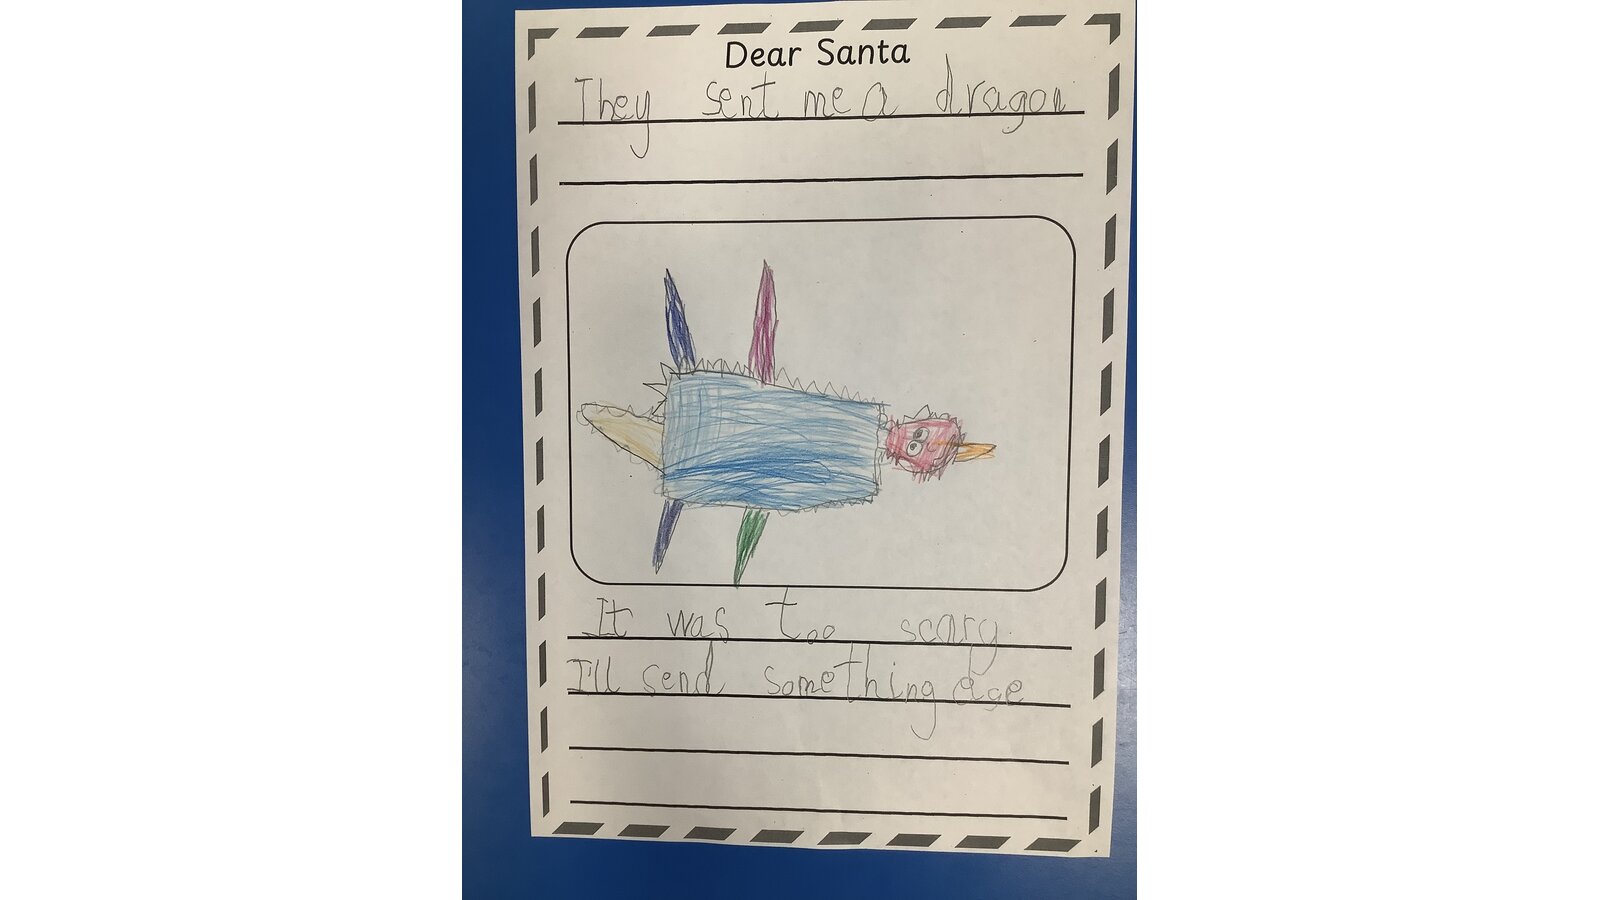 Dear Santa
They sent me a dragon
It was too scary.
I'll send something else